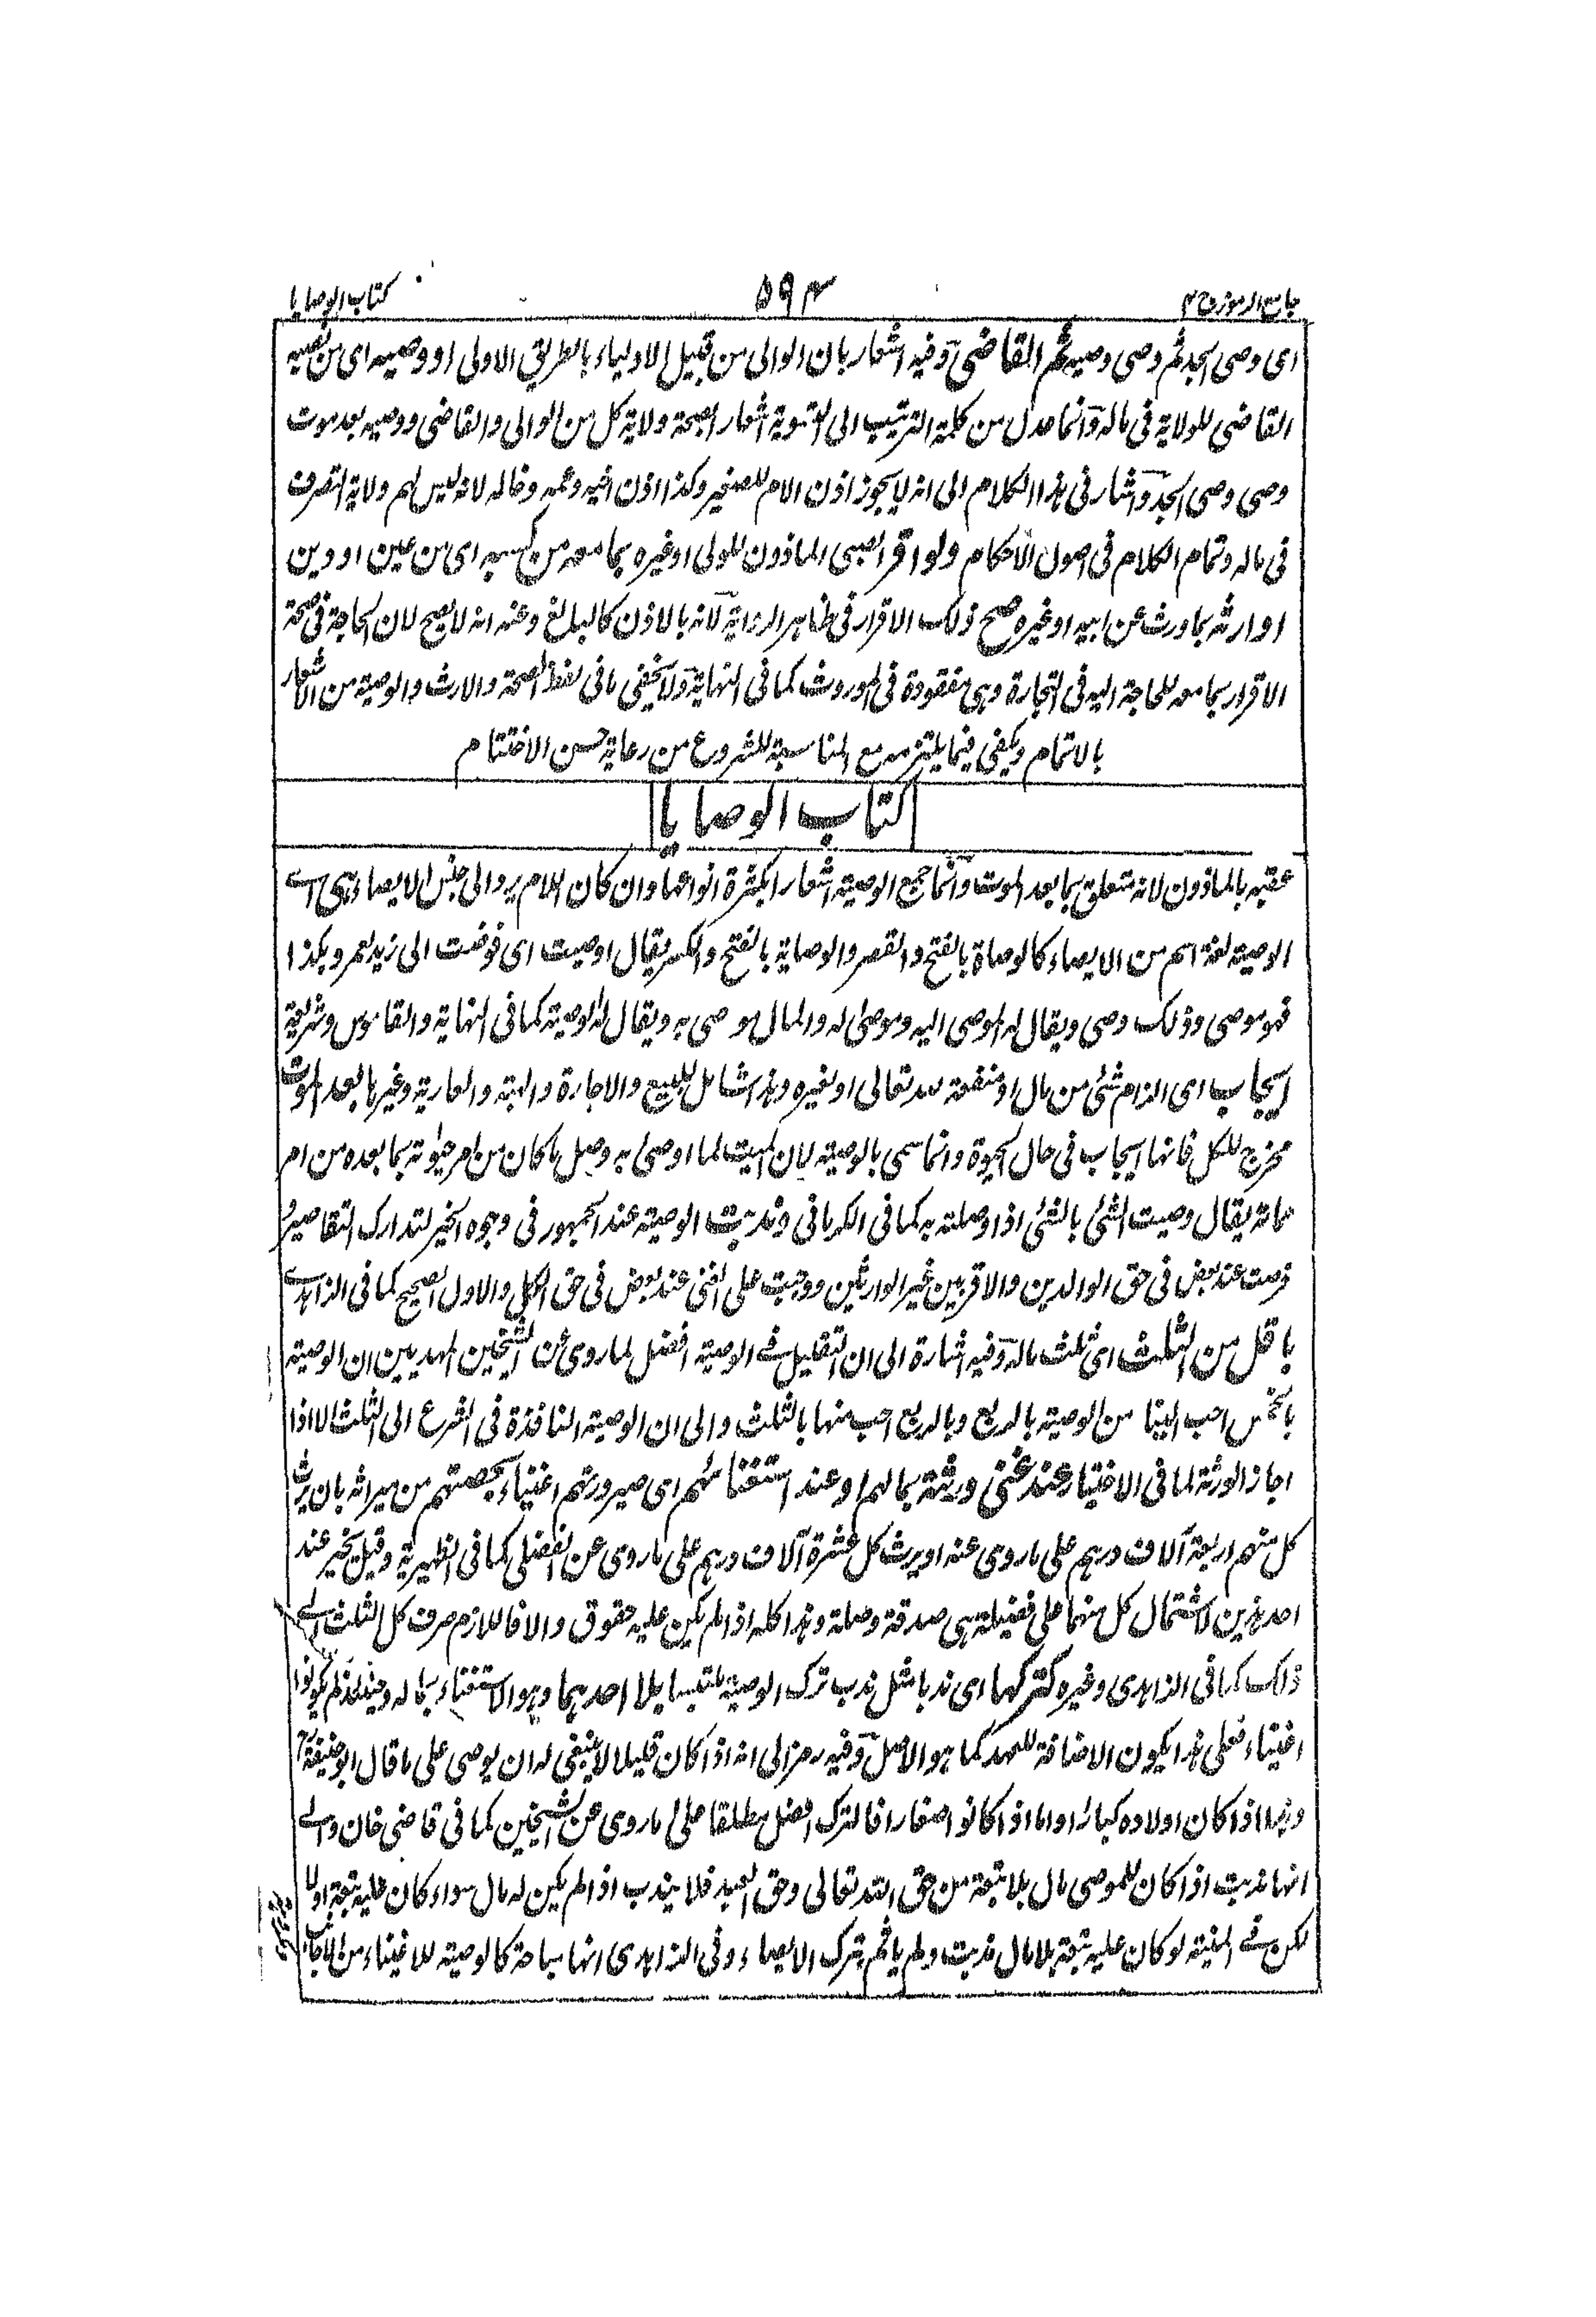 جامع الرموز ج ٢ ٥٩٤ كتاب الوصايا
اى وصى الجد ثم وصى وصيه ثم القاضى وفيه اشعار بان الوالى من قبيل الاولياء بالطريق الاولى او وصيه اى من نصبه
القاضى للولاية فى ماله وانما عدل من كلمة الترتيب الى التسوية اشعارا بصحة ولاية كل من الوالى والقاضى ووصيه بعد موت
وصى وصى الجد واشار فى هذا الكلام الى انه لا يجوز اذن الام للصغير وكذا اذن اخيه وعمه وخاله لانه ليس لهم ولاية التصرف
فى ماله وتمام الكلام فى اصول الاحكام ولو اقر الصبى الماذون للولى او غيره بما معه من كسبه اى من عين او دين
او ارثه بما ورث عن ابيه او غيره صح ذلك الاقرار فى ظاهر الرواية لانه بالاذن كالبالغ وعنه انه لا يصح لان الحاجة فى صحة
الاقرار بما معه للحاجة اليه فى التجارة وهى مفقودة فى الموروث كما فى النهاية ولا يخفى ما فى لفظ الصحة والارث والوصية من الاشعار
بالاتمام ويكفى فيما يلتزمه مع المناسبة للشروع من رعاية حسن الاختتام
كتاب الوصايا
عقبه بالماذون لانه متعلق بما بعد الموت وانما جمع الوصية اشعارا بكثرة انواعها وان كان اللام يرد الى جنس الايصاء وهى اے
الوصية لغة اسم من الايصاء كالوصاة بالفتح والقصر والوصاية بالفتح والكسر يقال اوصيت اى فوضت الى زيد لعمرو بكذا
فهو موصى وذلك وصى ويقال له الموصى اليه وموصى له والمال موصى به ويقال له الوصية كما فى النهاية والقاموس وشريعة
ايجاب اى الزام شئ من مال او منفعة لله تعالى او لغيره وهذا شامل للبيع والاجارة والهبة والعارية وغيرها بعد الموت
مخرج للكل فانها ايجاب فى حال الحيوة وانما سمى بالوصية لان الميت لما اوصى به وصل ما كان من امر حيوته بما بعده من امر
مماته يقال وصيت الشئ بالشئ اذا وصلته به كما فى الكرمانى وندبت الوصية عند الجمهور فى وجوه الخير لتدارك التقاصير و
فرضت عند بعض فى حق الوالدين والاقربين غير الوارثين ووجبت على الغنى عند بعض فى حق الكل والاول الصحيح كما فى الزاهدے
باقل من الثلث اى ثلث ماله وفيه اشارة الى ان التقليل فے الوصية افضل لما روى عن الشيخين المهديين ان الوصية
بالخمس احب الينا من الوصية بالربع وبالربع احب منها بالثلث والى ان الوصية النافذة فى الشرع الى الثلث الا اذا
اجاز الورثة لما فى الاختيار عند غنى ورثته بمالهم او عند استغنائهم اى صيرورتهم اغنياء بحصتهم من ميراثه بان يرث
كل منهم اربعة آلاف درهم على ما روى عنه او يرث كل عشرة آلاف درهم على ما روى عن الفضلى كما فى الظهيرية وقيل يخير عند
احد هذين لاشتمال كل منهما على فضيلة هى صدقة وصلة وهذا كله اذا لم يكن عليه حقوق والا فاللازم صرف كل الثلث الے
ذلك كما فى الزاهدى وغيره كتركها اى ندبا مثل ندب ترك الوصية ملتبسا بلا احدهما وهو الاستغناء بماله وحينئذ لم يكونوا
اغنياء فعلى هذا يكون الاضافة للعهد كما هو الاصل وفيه رمز الى انه اذا كان قليلا لا ينبغى له ان يوصى على ما قال ابو حنيفة
وهذا اذا كان اولاده كبارا واما اذا كانوا صغارا فالترك افضل مطلقا على ما روى عن الشيخين كما فى قاضى خان والے
انها ندبت اذا كان للموصى مال بلا تبعة من حق الله تعالى وحق العبد فلا يندب اذا لم يكن له مال سواء كان عليه تبعة اولا
لكن فے المنية لو كان عليه تبعة بلا مال ندبت ولم ياثم بترك الايصاء وفى الزاهدى انها مباحة كالوصية للاغنياء من الاجانب